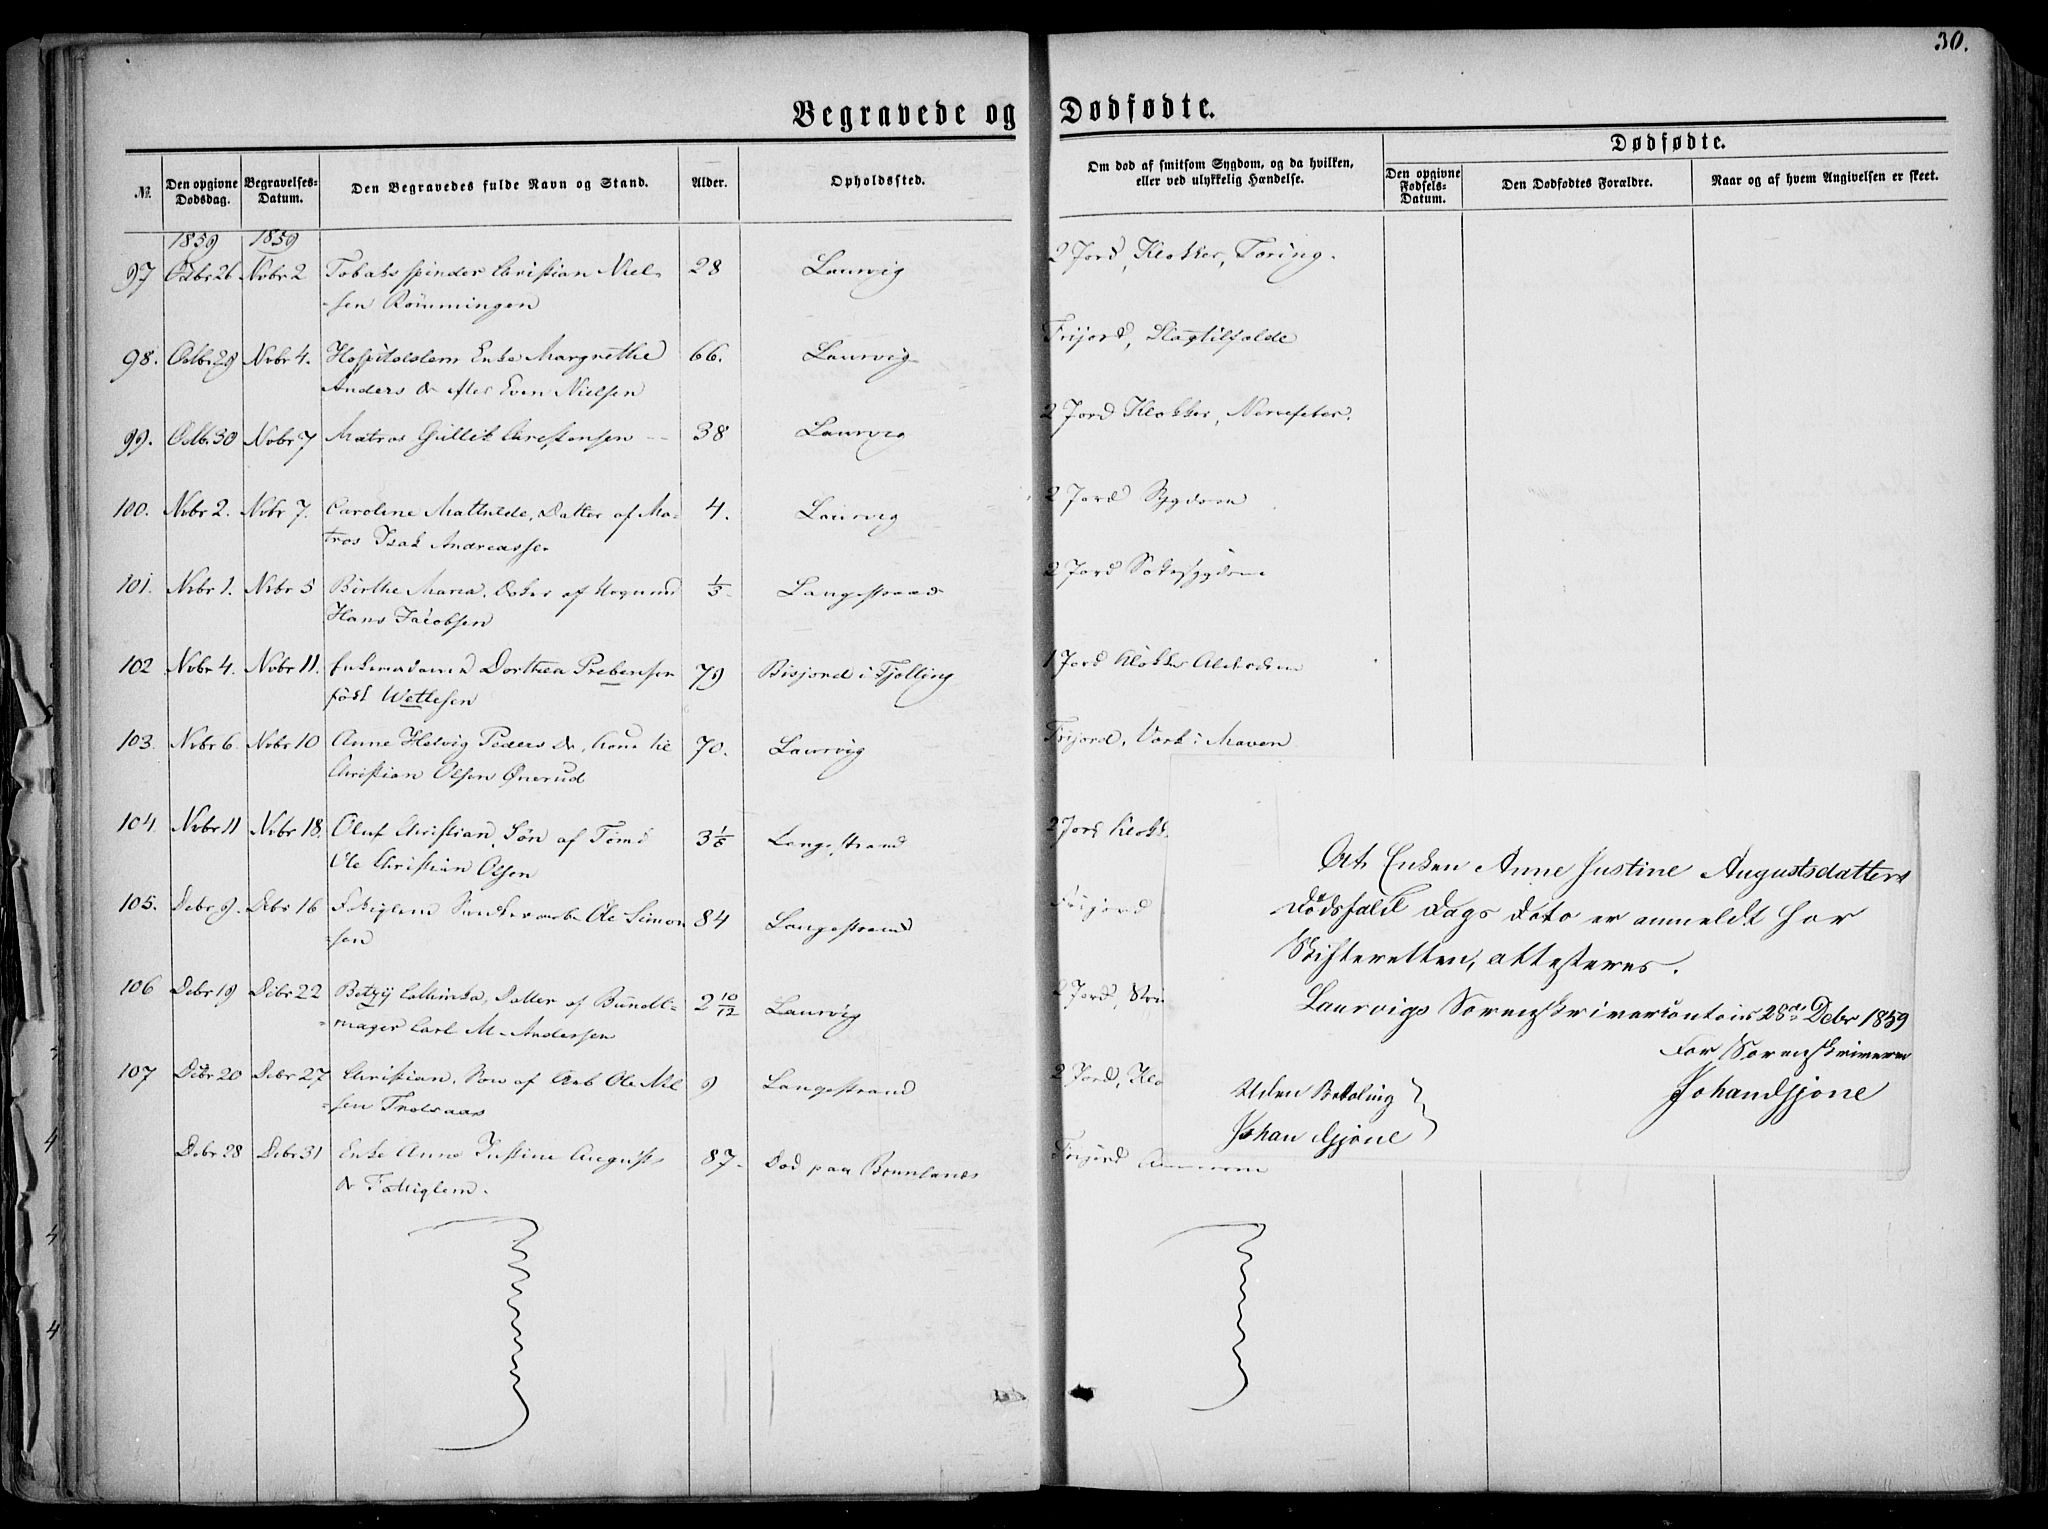 30.
Begravede og Dødfødte.
№
Den opgivne Dødsdag.
Begravelses-Datum.
Den Begravedes fulde Navn og Stand.
Alder.
Opholdssted.
Om død af smitsom Sygdom, og da hvilken, eller ved ulykkelig Hændelse.
Dødfødte.
Den opgivne Fødsels-Datum.
Den Dødfødtes Forældre.
Naar og af hvem Angivelsen er skeet.
1859 1859
97 Octbr 26 Nvbr 2 Tobaksspinder Christian Niel- 28 Laurvig 2 Jord, Klokker, Tæring.
-sen Rømmingen
98. Octbr 29 Nvbr 4. Hospitalslem Enke Margrethe 66. Laurvig Frijord, Slagtilfælde
Anders Dr efter Even Nielsen
99. Octb. 30 Nvbr 7 Matros Gullik Christensen 38 Laurvig 2 Jord Klokker, Nervefeber.
100. Nvbr 2. Nvbr 7. Caroline Mathilde, Datter af Ma- 4. Laurvig 2 Jord
tros Isak Andreassen
101. Nvbr 1. Nvbr 5 Birthe Maria, Datter af Hans Jacobsen Langestrand 2 Jord
102 Nvbr 4. Nvbr 11. Enkemadame Dorthea Prebensen 79 Bisjord i Tjølling 1 Jord Klokker Alderdom
født Wettesen
103. Nvbr 6. Nvbr 10 Anne Helvig Peders Dr, Kone til 70. Laurvig Frijord, Værk i Maven
Christian Olsen Ønerud
104. Nvbr 11 Nvbr 18. Oluf Christian, Søn af Tømd 3 1/6 Langestrand 2 Jord Klokk
Ole Christian Olsen
105. Debr 9. Debr 16 Fattiglem Ole Simon 84 Langestrand Frijord
-sen
106 Debr 19 Debr 22 Betzy Cathinka, Datter af Bundt- 2 10/12 Laurvig 2 Jord, Stru
-mager Carl M. Andersen
107 Debr 20 Debr 27 Christian, Søn af Arb Ole Niel 9 Langestrand 2 Jord, Klo
-sen
Debr 28 Debr 31 Enke Anne Justine Augusts 87. Død paa Brunlanæs Frijord
Dr Fattiglem.
At Enken Anne Justine Augustsdatters
Dødsfald Dags Dato er anmeldt for
Skifteretten, attesteres.
Laurvigs Sorenskrivercontoir 28de Debr 1859
For Sorenskriveren
Johan Gjøne
Uden Betaling
Johan Gjøne